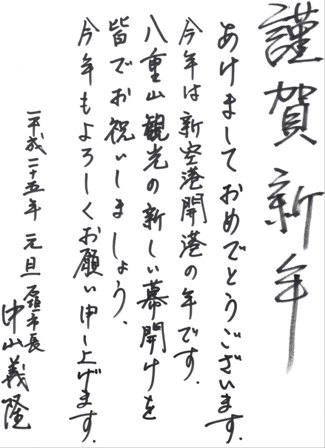 謹賀新年
あけましておめでとうございます.
今年は新空港開港の年です.
八重山観光の新しい幕開けを
皆でお祝いしましょう.
今年もよろしくお願い申し上げます.
平成二十五年 元旦 石垣市長
中山義隆